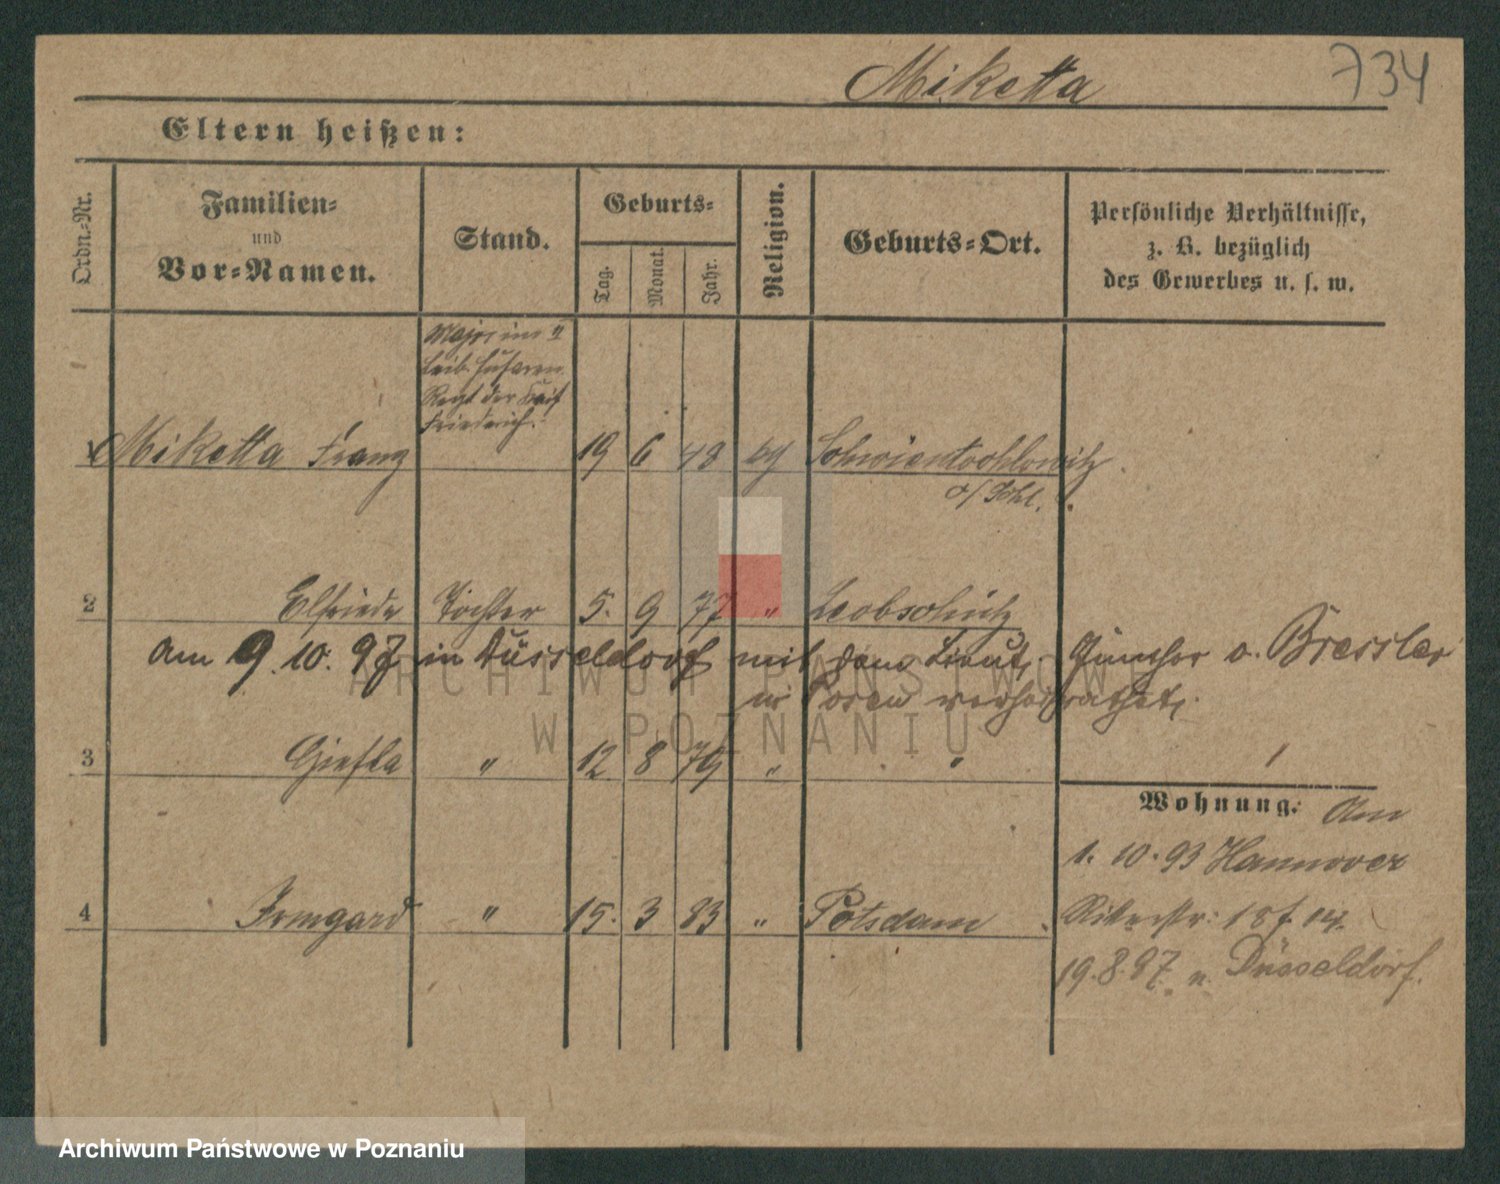 Miketta
734
Eltern heißen:
Ordn.-Nr.
Familien-
und
Vor-Namen.
Stand.
Geburts-
Tag.
Monat.
Jahr.
Religion.
Geburts-Ort.
Persönliche Verhältnisse,
z. B. bezüglich
des Gewerbes u. s. w.
Major im
Leib. Husaren
Regt der Kais
Friedrich.
Miketta Franz 19 6 48 Schwientochlowitz
o/Schl.
2 Elfriede Tochter 5. 9 77 " Leobschütz
am 9.10.97 in Düsseldorf mit dem Lieut. Günther v. Bressler
in Posen verheirathet.
3 Gisela " 12 8 79 " "
Wohnung: Am
1. 10. 93 Hannover
4 Irmgard " 15. 3 83 " Potsdam
19.8.97 n. Düsseldorf.
ARCHIWUM PAŃSTWOWE
W POZNANIU
Archiwum Państwowe w Poznaniu